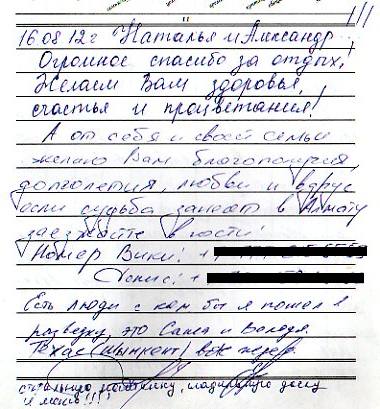 16.08.12г Наталья и Александр
Огромное спасибо за отдых!
Желаем Вам здоровья,
счастья и процветания!
А от себя и своей семьи
желаю Вам благополучия,
долголетия, любви и вдруг
если судьба занесёт в Алмату
заезжайте в гости!
Номер Вики: +
Денис: +
Есть люди с кем бы я пошел в
разведку, это Саша и Володя.
Техас (Шымкент)
стиральную машинку, гладильную доску
и меню!!!